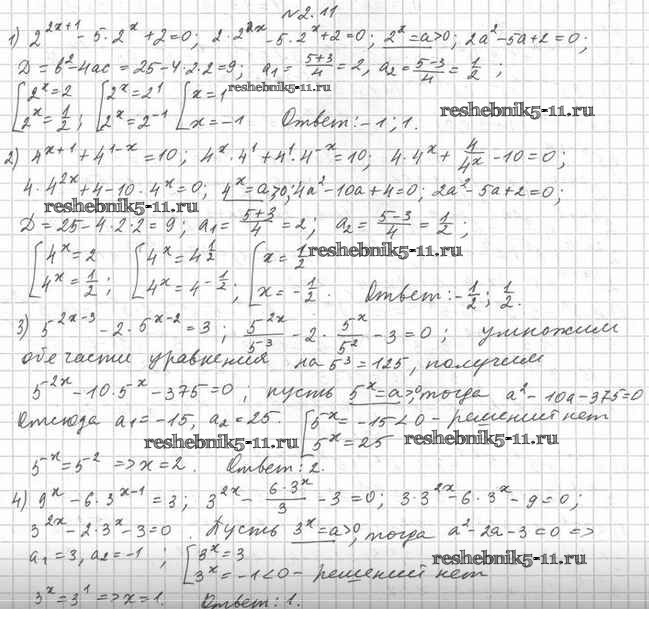 №2.11
1) 2^{2x+1} - 5·2^x + 2 = 0; 2·2^{2x} - 5·2^x + 2 = 0; 2^x = a > 0; 2a² - 5a + 2 = 0;
D = b² - 4ac = 25 - 4·2·2 = 9; a₁ = (5+3)/4 = 2, a₂ = (5-3)/4 = 1/2;
reshebnik5-11.ru
[2^x = 2 2^x = 1/2; [2^x = 2^1 2^x = 2^{-1} [x = 1 x = -1 Ответ: -1; 1.
reshebnik5-11.ru
2) 4^{x+1} + 4^{1-x} = 10; 4^x·4^1 + 4^1·4^{-x} = 10; 4·4^x + 4/4^x - 10 = 0;
4·4^{2x} + 4 - 10·4^x = 0; 4^x = a > 0; 4a² - 10a + 4 = 0; 2a² - 5a + 2 = 0;
reshebnik5-11.ru
D = 25 - 4·2·2 = 9; a₁ = (5+3)/4 = 2; a₂ = (5-3)/4 = 1/2;
[4^x = 2 4^x = 1/2; [4^x = 4^{1/2} 4^x = 4^{-1/2}; [x = 1/2 x = -1/2. Ответ: -1/2; 1/2.
reshebnik5-11.ru
3) 5^{2x-3} - 2·5^{x-2} = 3; 5^{2x}/5^3 - 2·5^x/5^2 - 3 = 0; умножим
обе части уравнения на 5³ = 125, получим
5^{2x} - 10·5^x - 375 = 0; пусть 5^x = a > 0, тогда a² - 10a - 375 = 0
Отсюда a₁ = -15, a₂ = 25. [5^x = -15 < 0 - решений нет 5^x = 25
reshebnik5-11.ru reshebnik5-11.ru
5^x = 5^2 => x = 2. Ответ: 2.
4) 9^x - 6·3^{x-1} = 3; 3^{2x} - 6·3^x/3 - 3 = 0; 3·3^{2x} - 6·3^x - 9 = 0;
3^{2x} - 2·3^x - 3 = 0. Пусть 3^x = a > 0, тогда a² - 2a - 3 = 0 =>
a₁ = 3, a₂ = -1; [3^x = 3 3^x = -1 < 0 - решений нет
reshebnik5-11.ru
3^x = 3^1 => x = 1. Ответ: 1.